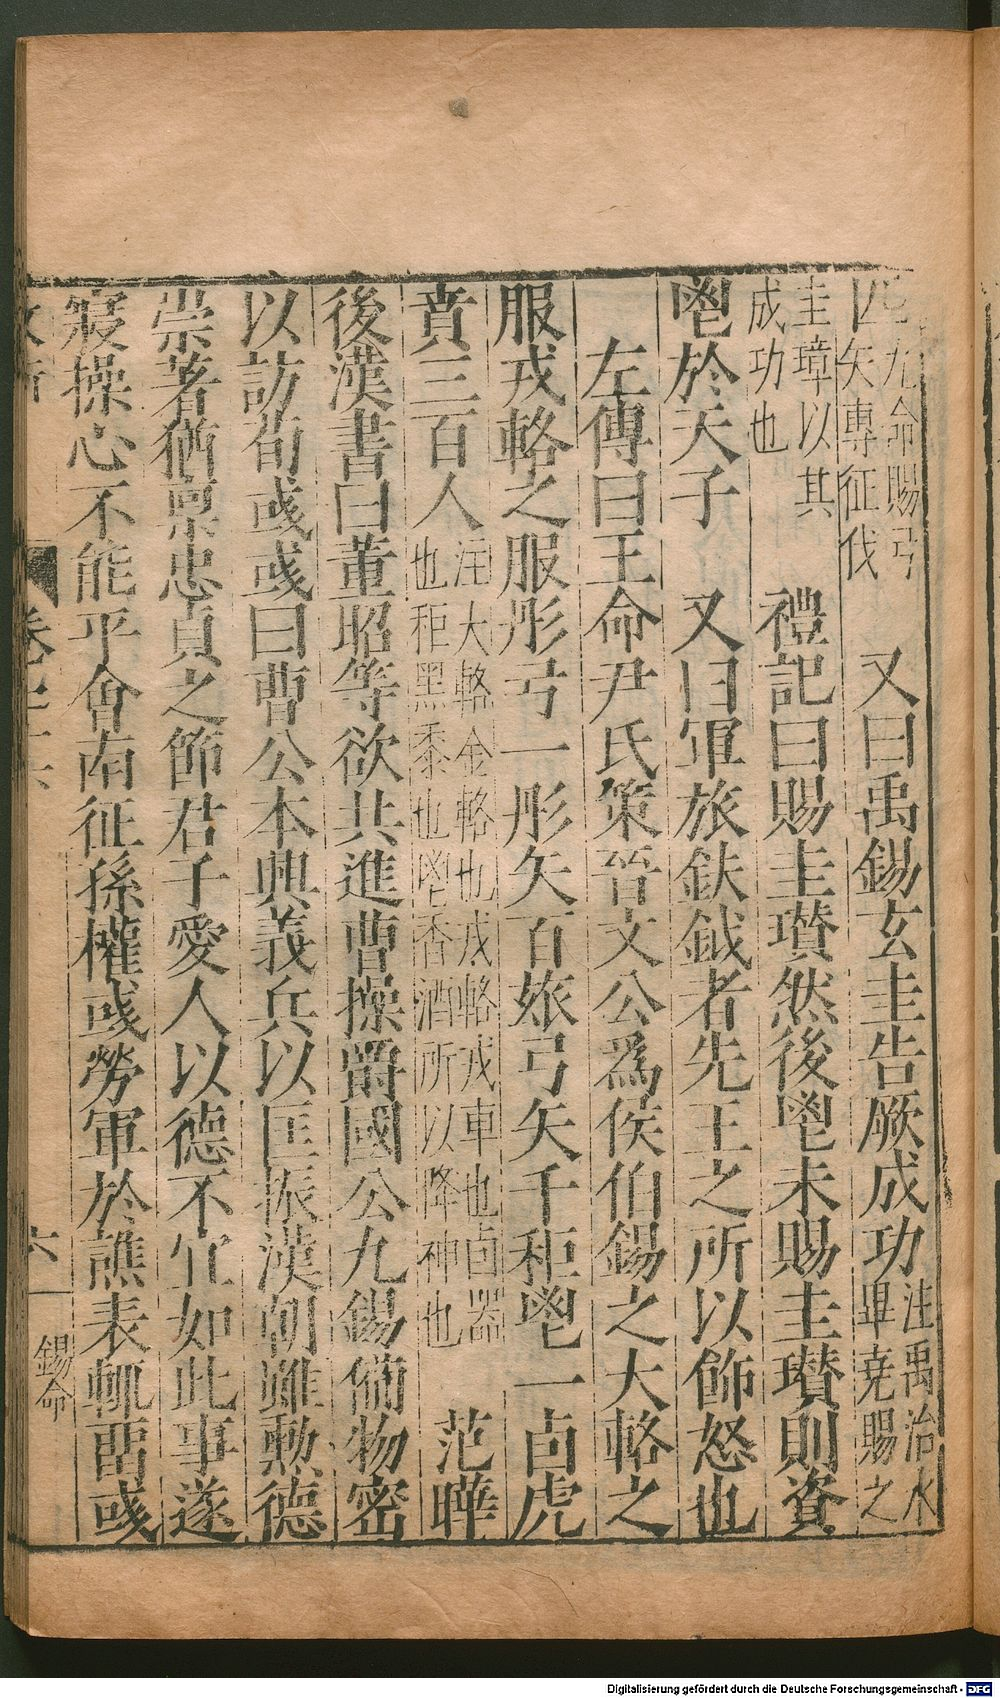 四九命賜弓矢專征伐 又曰禹錫玄圭告厥成功注禹治水畢堯賜之
圭璋以其成功也 禮記曰賜圭瓚然後鬯未賜圭瓚則資
鬯於天子 又曰軍旅鈇鉞者先王之所以飾怒也
左傳曰王命尹氏策晉文公爲侯伯錫之大輅之
服戎輅之服彤弓一彤矢百玈弓矢千秬鬯一卣虎
賁三百人注大輅金輅也戎輅戎車也卣器也秬黑黍也鬯香酒所以降神也 范曄
後漢書曰董昭等欲共進曹操爵國公九錫備物密
以訪荀彧彧曰曹公本興義兵以匡振漢朝雖勳德
崇著猶禀忠貞之節君子愛人以德不宜如此事遂
寢操心不能平會南征孫權彧勞軍於譙表輒留彧
六 錫命
Digitalisierung gefördert durch die Deutsche Forschungsgemeinschaft - DFG